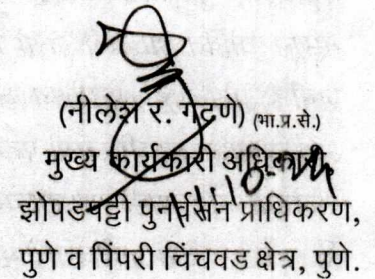 (नीलेश र. गटणे) (भा.प्र.से.)
मुख्य कार्यकारी अधिकारी,
झोपडपट्टी पुनर्वसन प्राधिकरण,
पुणे व पिंपरी चिंचवड क्षेत्र, पुणे.